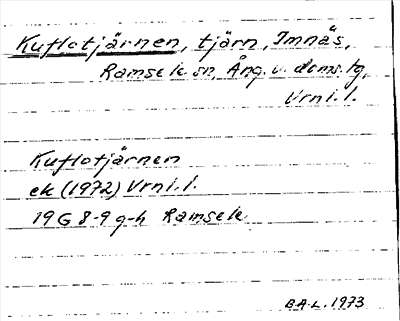 Kuflotjärnen, tjärn, Imnäs,
Ramsele sn, Ång. v. doms.tg,
Vrnl.l.
Kuflotjärnen
ek (1972) Vrnl.l.
19G 8-9 g-h Ramsele
B.A-L. 1973